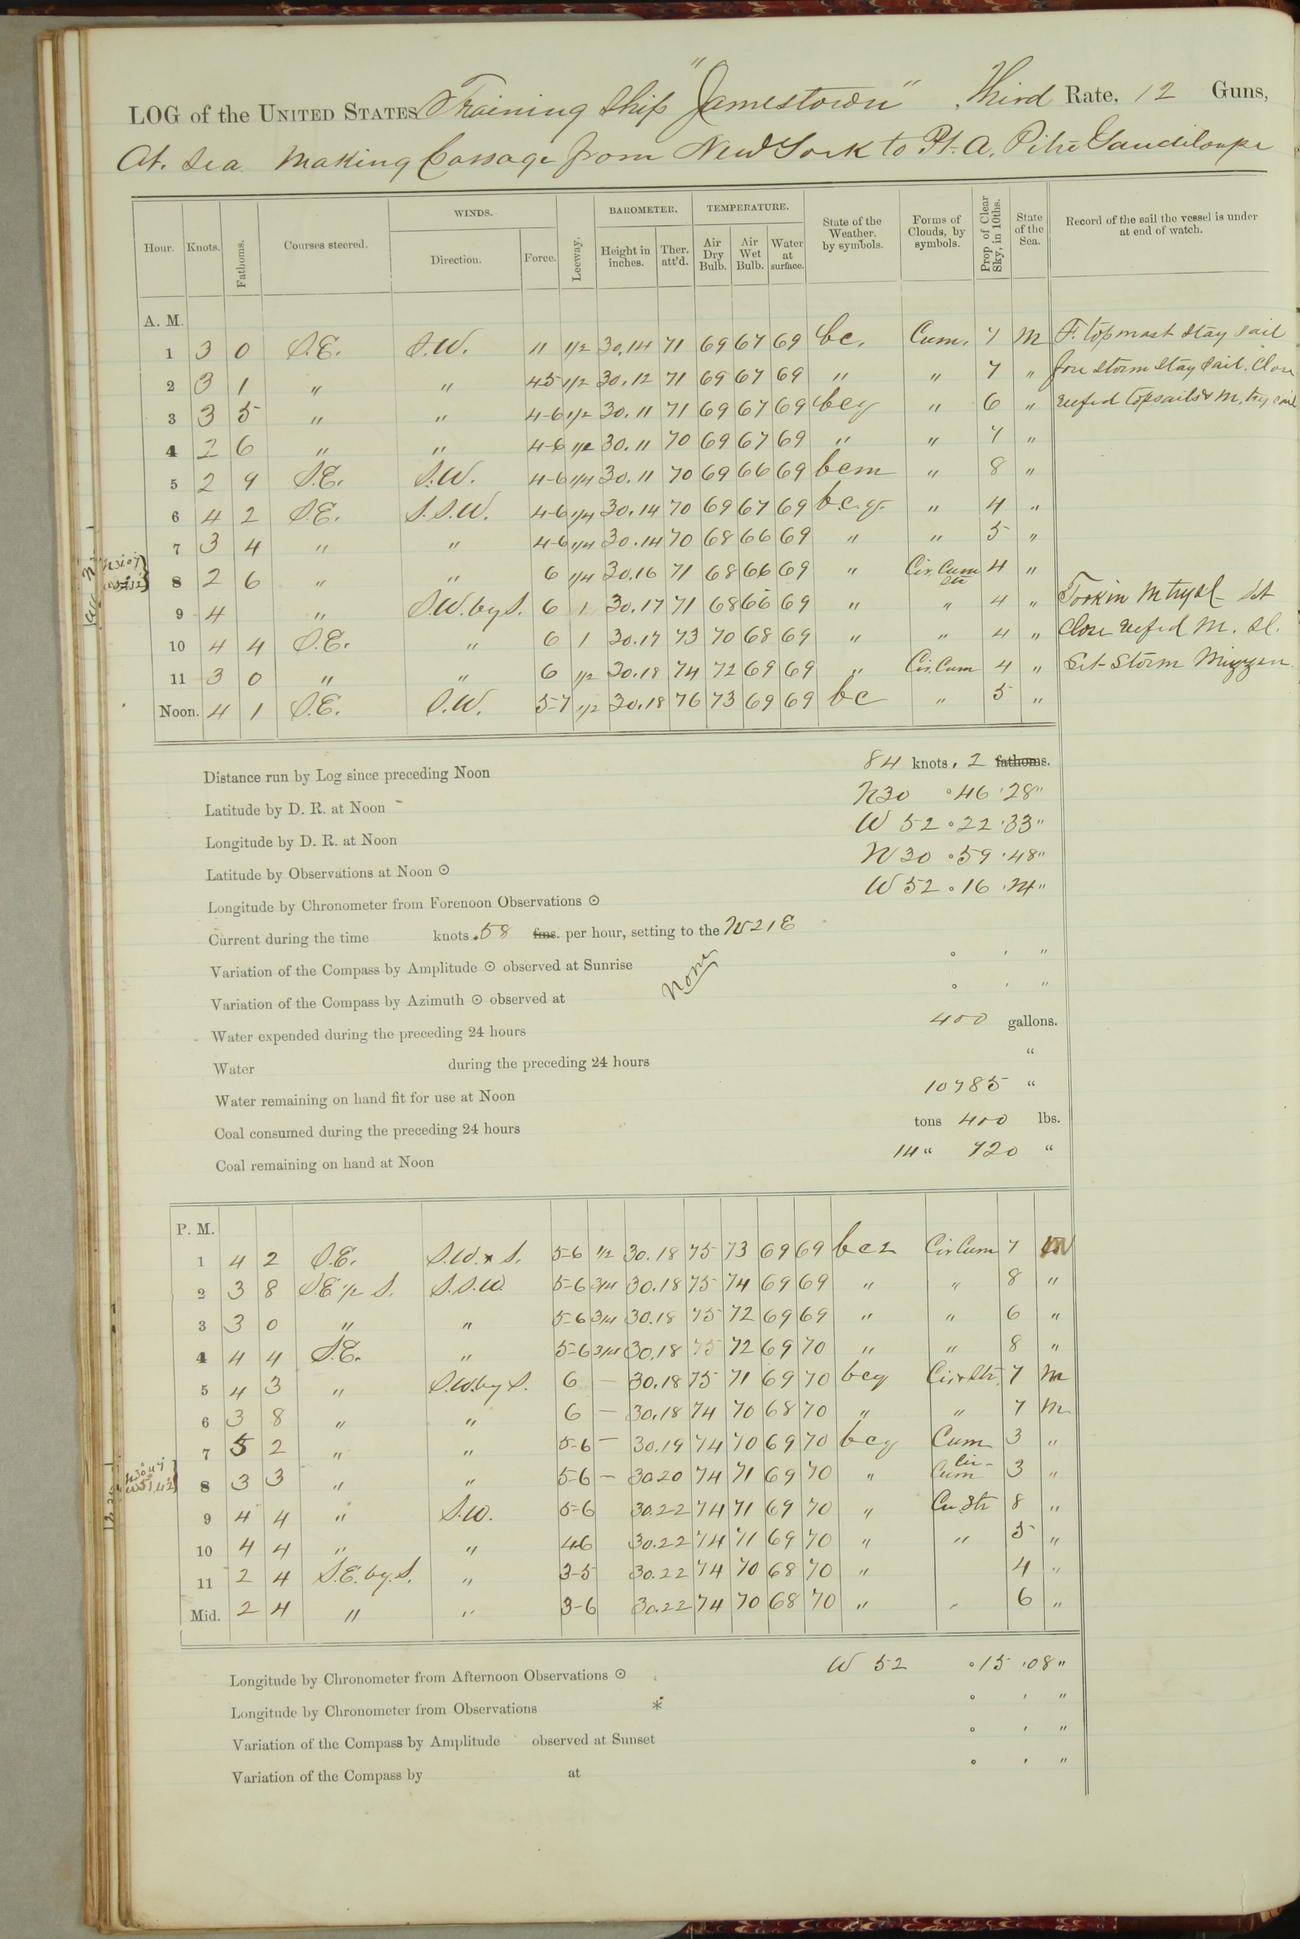 LOG of the UNITED STATES Training Ship "Jamestown", Third Rate, 12 Guns,
At Sea Making Passage from New York to Pt. A. Pitre Gaudiloupe
Hour. Knots. Fathoms. Courses steered. WINDS. Direction. Force. Leeway. BAROMETER. Height in inches. Ther. att'd. TEMPERATURE. Air Dry Bulb. Air Wet Bulb. Water at surface. State of the Weather. by symbols. Forms of Clouds, by symbols. Prop of Clear Sky, in 10ths. State of the Sea. Record of the sail the vessel is under at end of watch.
A. M.
1 3 0 S.E. S.W. " 1/2 30.14 71 69 67 69 bc. Cum. 7 M F. topmast stay sail
2 3 1 " " 4-5 1/2 30.12 71 69 67 69 " " 7 " fore storm stay sail, Close
3 3 5 " " 4-6 1/2 30.11 71 69 67 69 bcq " 6 " reefed topsails & M. try sail
4 2 6 " " 4-6 1/2 30.11 70 69 67 69 " " 7 "
5 2 9 S.E. S.W. 4-6 1/4 30.11 70 69 66 69 bcm " 8 "
6 4 2 S.E. S.S.W. 4-6 1/4 30.14 70 69 67 69 b.c.q. " 4 "
7 3 4 " " 4-6 1/4 30.14 70 68 66 69 " " 5 "
8 2 6 " " 6 1/4 30.16 71 68 66 69 " Cir. Cum Str 4 "
9 4 " S.W. by S. 6 1 30.17 71 68 66 69 " " 4 " Took in M trysl Set
10 4 4 S.E. " 6 1 30.17 73 70 68 69 " " 4 " Close reefed M. Sl.
11 3 0 " " 6 1/2 30.18 74 72 69 69 " Cir. Cum 4 " Set Storm Mizzen
Noon. 4 1 S.E. S.W. 5-7 1/2 30.18 76 73 69 69 bc " 5 "
Distance run by Log since preceding Noon 84 knots. 2 fathoms.
Latitude by D. R. at Noon N 30 ° 46 ' 28 "
Longitude by D. R. at Noon W 52 ° 22 ' 33 "
Latitude by Observations at Noon ⊙ N 30 ° 59 ' 48 "
Longitude by Chronometer from Forenoon Observations ⊙ W 52 ° 16 ' 24 "
Current during the time knots .58 fms. per hour, setting to the N 21 E
Variation of the Compass by Amplitude ⊙ observed at Sunrise None ° ' "
Variation of the Compass by Azimuth ⊙ observed at ° ' "
Water expended during the preceding 24 hours 400 gallons.
Water during the preceding 24 hours "
Water remaining on hand fit for use at Noon 10785 "
Coal consumed during the preceding 24 hours tons 400 lbs.
Coal remaining on hand at Noon 14 " 720 "
P. M.
1 4 2 S.E. S.W. x S. 5-6 1/2 30.18 75 73 69 69 bcz Cir Cum 7 M
2 3 8 S.E 1/2 S. S.S.W. 5-6 3/4 30.18 75 74 69 69 " " 8 "
3 3 0 " " 5-6 3/4 30.18 75 72 69 69 " " 6 "
4 4 4 S.E. " 5-6 3/4 30.18 75 72 69 70 " " 8 "
5 4 3 " S.W. by S. 6 — 30.18 75 71 69 70 bcq Cir & Str. 7 M
6 3 8 " " 6 — 30.18 74 70 68 70 " " 7 M
7 5 2 " " 5-6 — 30.19 74 70 69 70 bcq Cum 3 "
8 3 3 " " 5-6 — 30.20 74 71 69 70 " Cir-Cum 3 "
9 4 4 " S.W. 5-6 30.22 74 71 69 70 " Cu. Str 8 "
10 4 4 " " 4-6 30.22 74 71 69 70 " " 5 "
11 2 4 S.E. by. S. " 3-5 30.22 74 70 68 70 " 4 "
Mid. 2 4 " " 3-6 30.22 74 70 68 70 " " 6 "
Longitude by Chronometer from Afternoon Observations ⊙ W 52 ° 15 ' 08 "
Longitude by Chronometer from Observations * ° ' "
Variation of the Compass by Amplitude observed at Sunset ° ' "
Variation of the Compass by at ° ' "